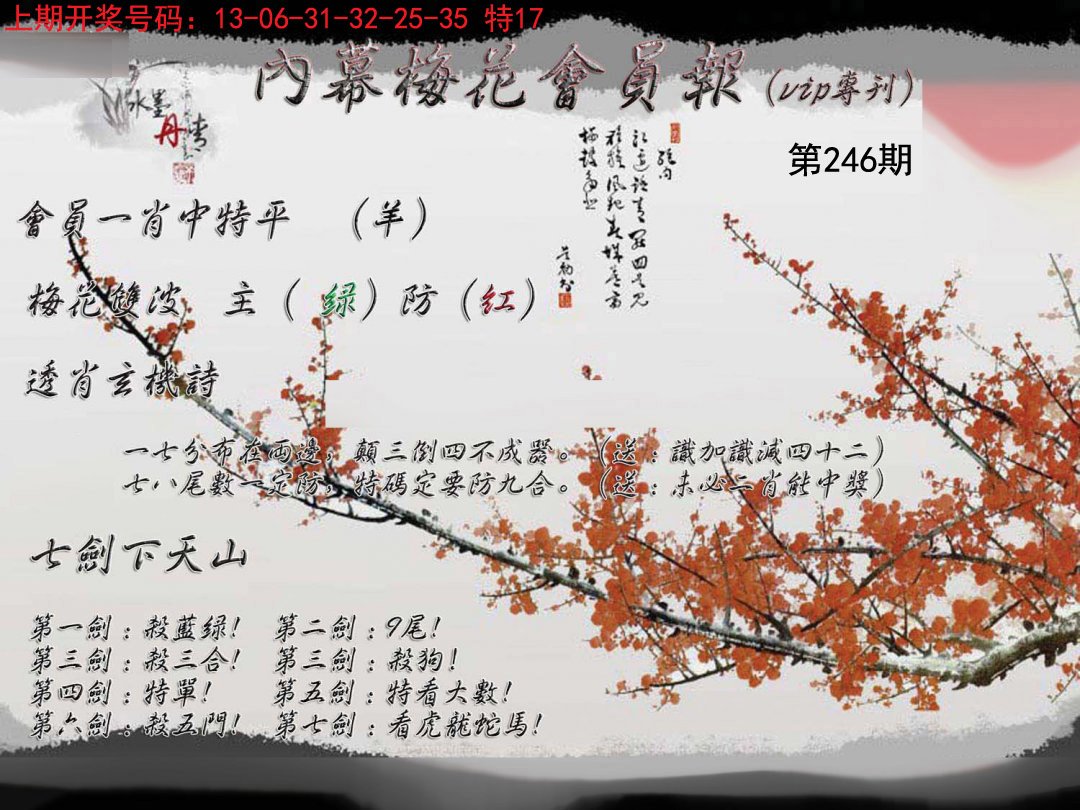 上期开奖号码：13-06-31-32-25-35 特17
內幕梅花會員報（vip專刊）
水墨丹青
第246期
會員一肖中特平 （羊）
梅花雙波 主（绿）防（红）
透肖玄機詩
一七分布在両邊，顛三倒四不成器。（送：識加識減四十二）
七八尾數一定防，特碼定要防九合。（送：未必二肖能中獎）
七劍下天山
第一劍：殺藍绿！ 第二劍：9尾！
第三劍：殺三合！ 第三劍：殺狗！
第四劍：特單！ 第五劍：特看大數！
第六劍：殺五門！ 第七劍：看虎龍蛇馬！